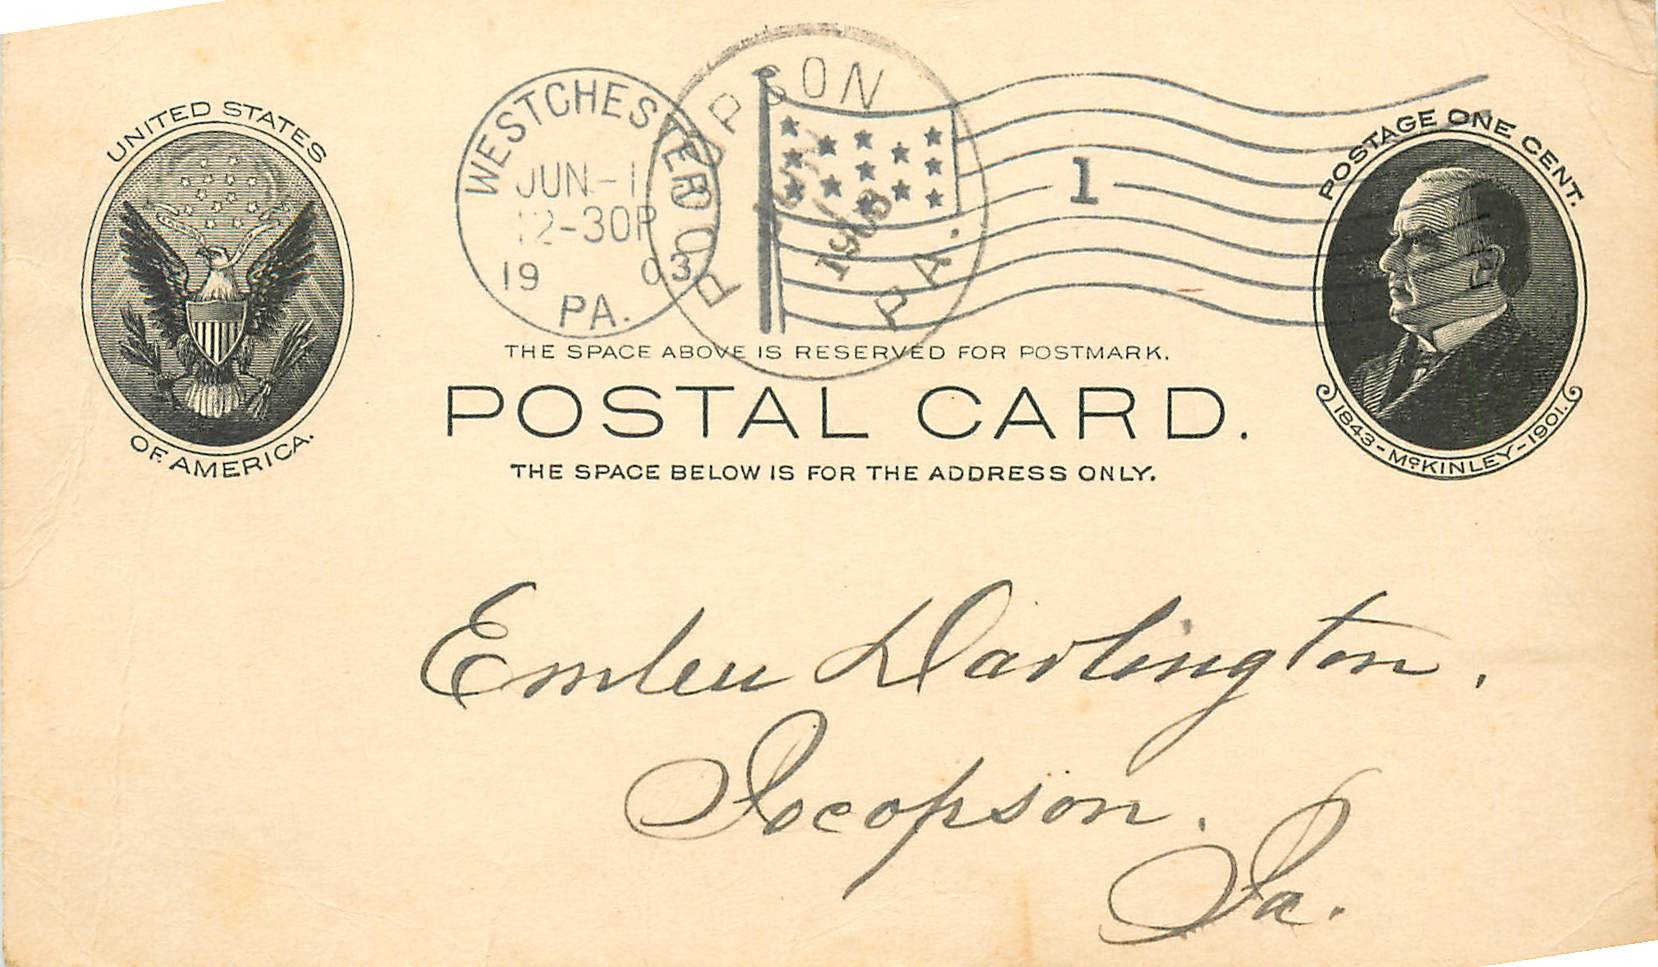 UNITED STATES
OF AMERICA.
WESTCHESTER
JUN-1
12-30P
19 03
PA.
POCOPSON
JUN
1903
PA.
1
POSTAGE ONE CENT.
1843-McKINLEY-1901.
THE SPACE ABOVE IS RESERVED FOR POSTMARK.
POSTAL CARD.
THE SPACE BELOW IS FOR THE ADDRESS ONLY.
Emlen Darlington.
Pocopson.
Pa.